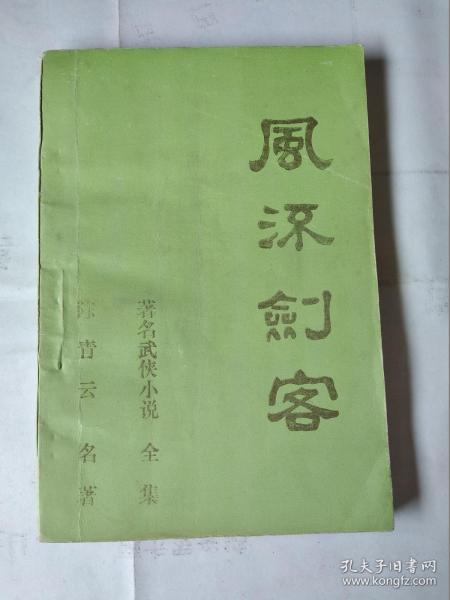 風流劍客
著名武侠小说 全集
陈青云 名著
孔夫子旧书网
www.kongfz.com